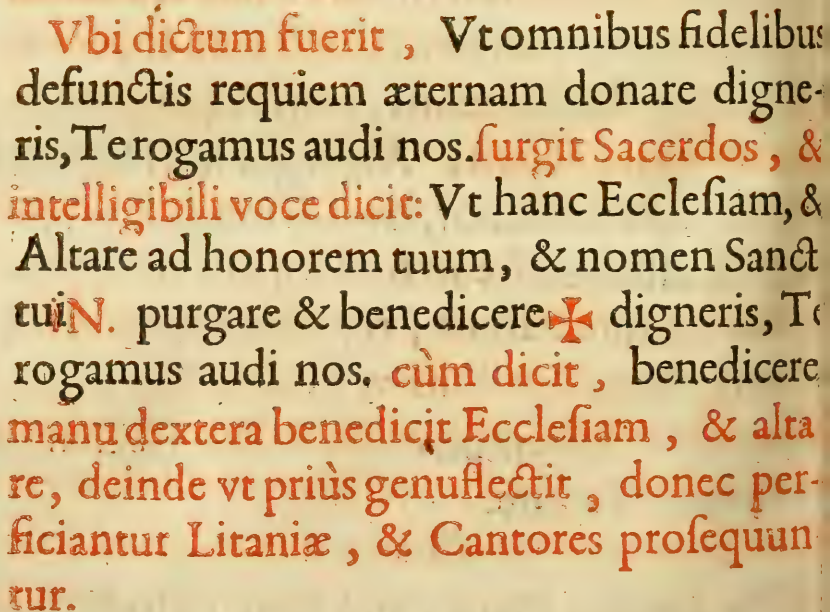 Vbi dictum fuerit, Vt omnibus fidelibus
defunctis requiem æternam donare digne-
ris, Te rogamus audi nos. ſurgit Sacerdos, &
intelligibili voce dicit: Vt hanc Eccleſiam, &
Altare ad honorem tuum, & nomen Sanct
tui N. purgare & benedicere ✠ digneris, Te
rogamus audi nos. cùm dicit, benedicere
manu dextera benedicit Eccleſiam, & alta
re, deinde vt priùs genuflectit, donec per-
ficiantur Litaniæ, & Cantores proſequun
tur.